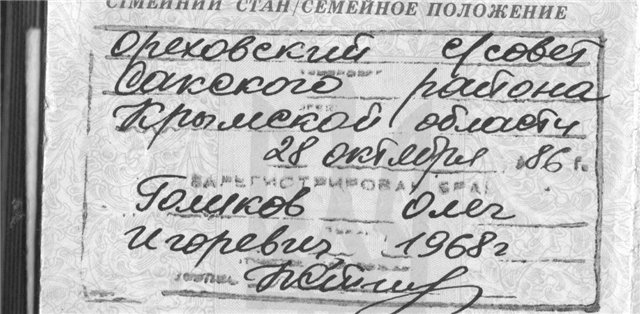 СІМЕЙНИЙ СТАН/СЕМЕЙНОЕ ПОЛОЖЕНИЕ
Ореховский с/совет
Сакского района
Крымской области
28 октября 86 г.
ЗАРЕГИСТРИРОВАН БРАК
Олег
Игоревич 1968г